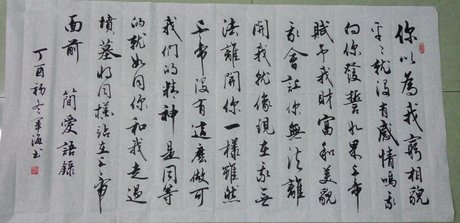 你以為我窮相貌
平々就沒有感情嗎我
向你發誓如果上帝
賦予我財富和美貌
我會讓你無法離
開我就像現在我無
法離開你一樣雖然
上帝沒有這麼做可
我們的精神是同等
的就如同你和我走過
墳墓將同樣站在上帝
面前 簡愛語錄
丁酉初冬海書